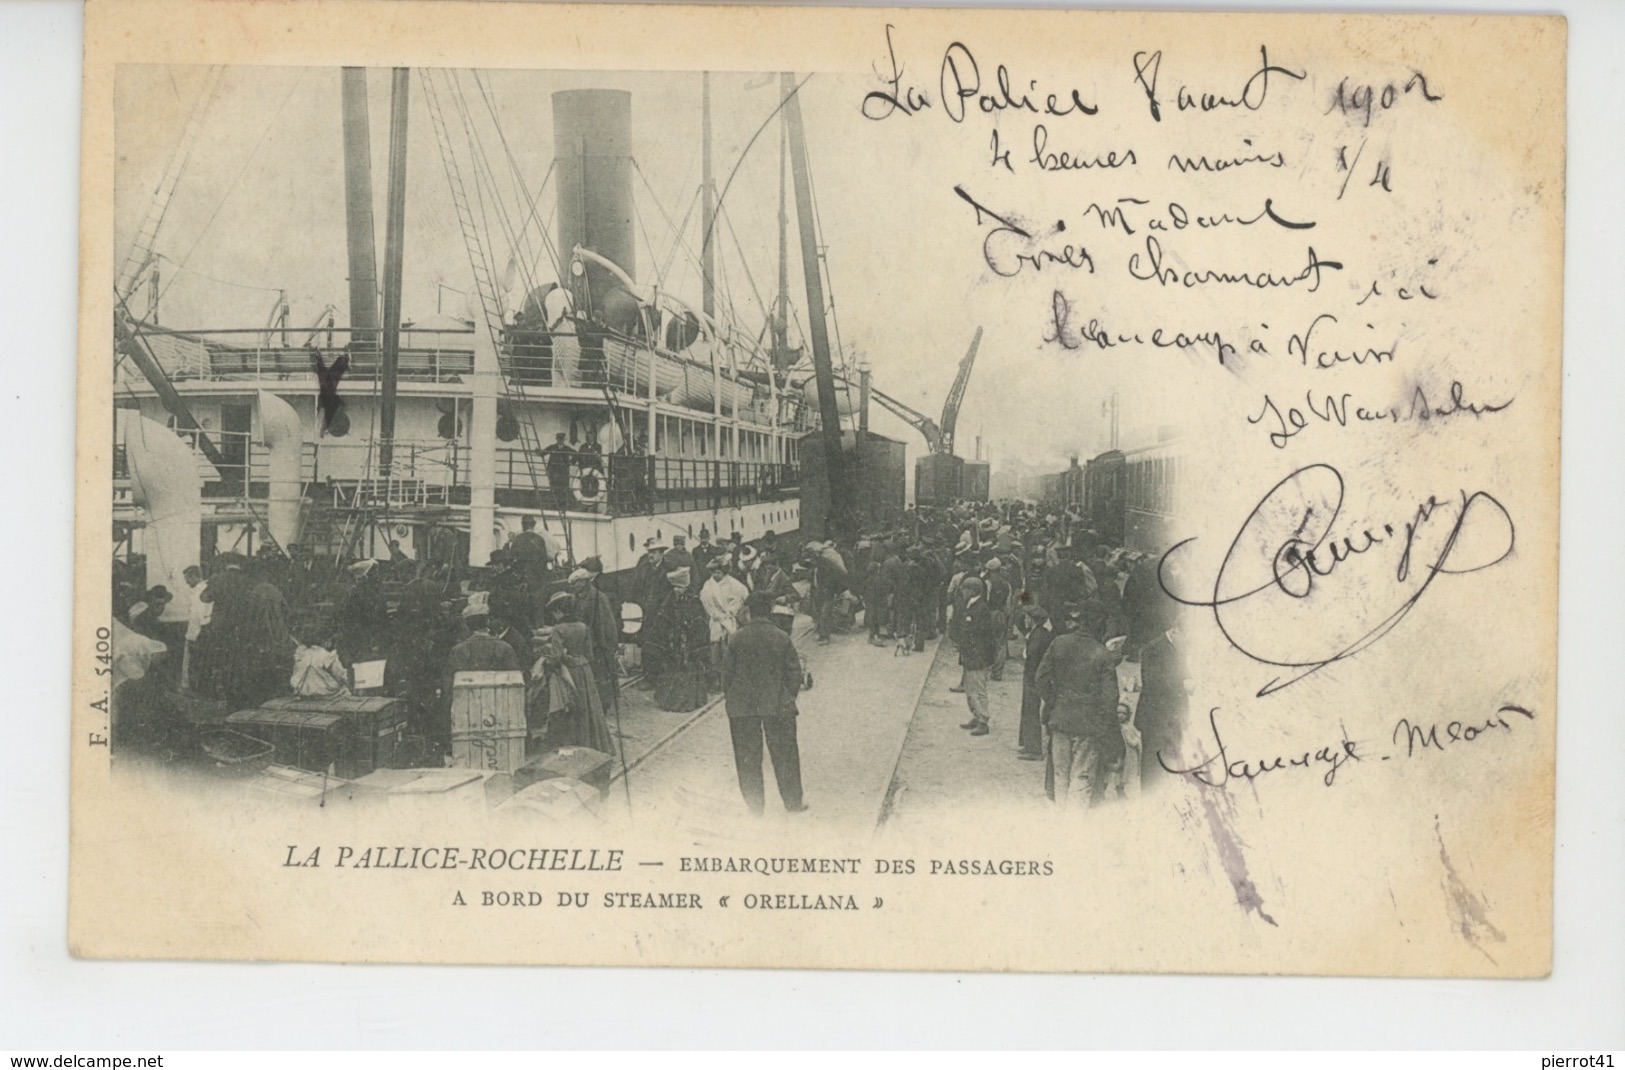 La Palice 8 aout 1902
4 heures moins 1/4
Madame
Très charmant ici
beaucoup à Voir
Je Vous salue
Sauvage-Meaux
F. A. 5400
LA PALLICE-ROCHELLE — EMBARQUEMENT DES PASSAGERS
A BORD DU STEAMER « ORELLANA »
www.delcampe.net
pierrot41